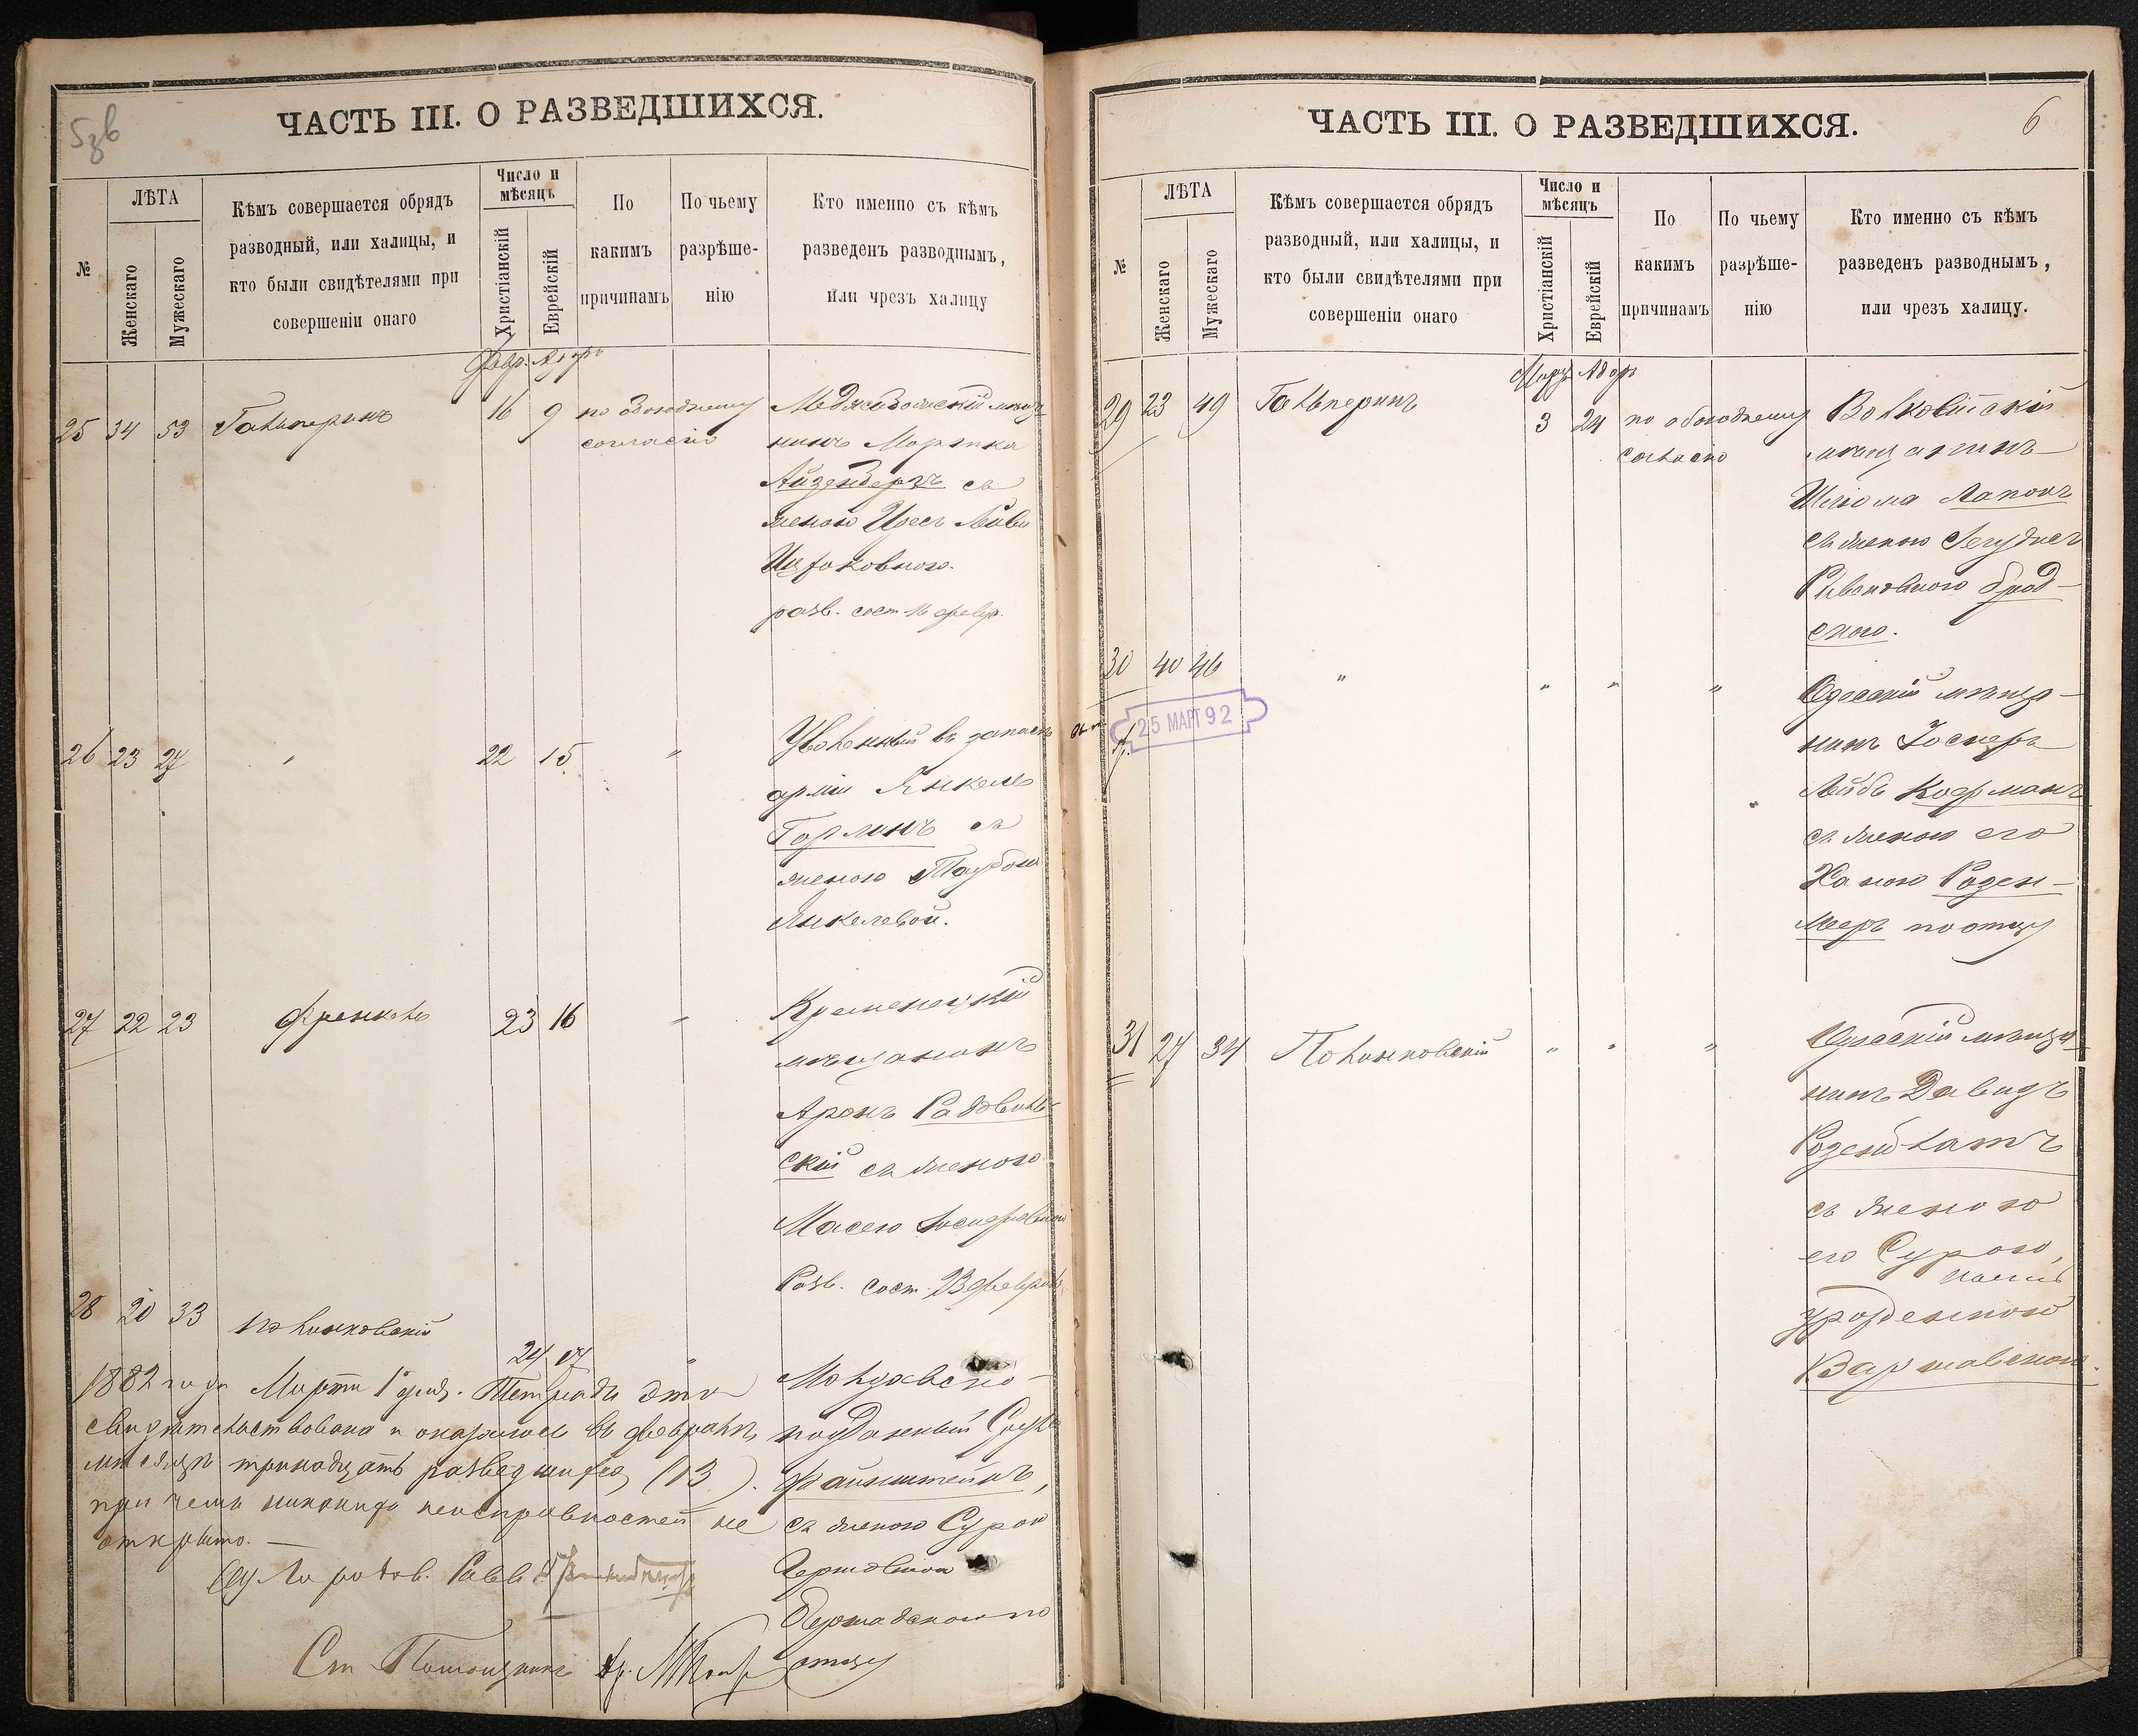 5зв
ЧАСТЬ III. О РАЗВЕДШИХСЯ.
№
ЛѢТА
Женскаго
Мужескаго
Кѣмъ совершается обрядъ
разводный, или халицы, и
кто были свидѣтелями при
совершеніи онаго
Число и
мѣсяцъ
Христіанскій
Еврейскій
По
какимъ
причинамъ
По чьему
разрѣше-
нію
Кто именно съ кѣмъ
разведенъ разводнымъ,
или чрезъ халицу
Февр. Адаръ
25 34 53 Гальперинъ 16 9 по обоюдному
согласію
мѣща
нинъ Мортка
Айзенбергъ съ
женою
Ицковною.
разв. сост. 16 февр.
26 23 27 " 22 15 "
Уволенный въ запасъ
арміи Янкель
Горлинъ съ
женою Таубою
Янкелевой.
27 22 23 Френкель 23 16 "
Кременецкій
мѣщанинъ
Аронъ Радзвиль-
скій съ женою
Масею Іосифовною
Разв. сост. 23 февраля
28 20 33 Полинковскій 24 17 "
Молдавско-
подданный
Файнштейнъ,
съ женою Сурою
Гершовною
Бершадскою по
отцу
1882 года Марта 1 дня. Тетрадь эта
свидѣтельствована и оказалось въ февралѣ
мѣсяцѣ тринадцать разведшихся (13).
при чемъ никакихъ неисправностей не
открыто. —
Город. Равв.
Ст.
ЧАСТЬ III. О РАЗВЕДШИХСЯ.
6
№
ЛѢТА
Женскаго
Мужескаго
Кѣмъ совершается обрядъ
разводный, или халицы, и
кто были свидѣтелями при
совершеніи онаго
Число и
мѣсяцъ
Христіанскій
Еврейскій
По
какимъ
причинамъ
По чьему
разрѣше-
нію
Кто именно съ кѣмъ
разведенъ разводнымъ,
или чрезъ халицу.
Мартъ Адаръ
29 23 49 Гальперинъ 3 24 по обоюдному
согласію
Волковискій
мѣщанинъ
Шлiома Лапонъ
съ женою
Рувеновною Брод-
скою.
30 40 46 " " " "
25 МАРТ 92
Одесскій мѣща-
нинъ
Лейбъ Кофманъ
съ женою его
Ханою Розен-
мееръ по отцу
31 27 34 Полинковскій " " "
Одесскій мѣща-
нинъ Давидъ
Розенблатъ
съ женою
его Сурою,
урожденною
Варшавскою.